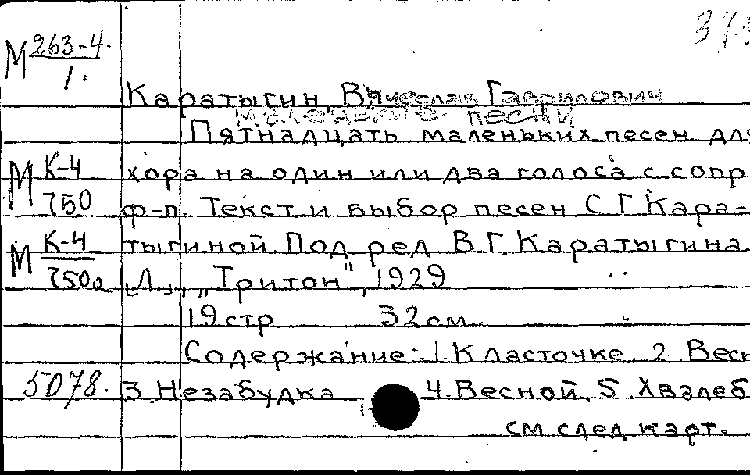 М 263-4.
1.
Каратыгин, Вячеслав Гаврилович
маленькие песни
Пятнадцать маленьких песен для
М К-4
750
хора на один или два голоса с сопр
ф-п. Текст и выбор песен С.Г.Кара-
М К-4
750а
тыгиной Под ред В.Г.Каратыгина
Л., „Тритон", 1929
19 стр 32 см
Содержание: 1 К ласточке 2 Весн
5078. 3 Незабудка 4. Весной, 5. Хвалеб
см след карт.